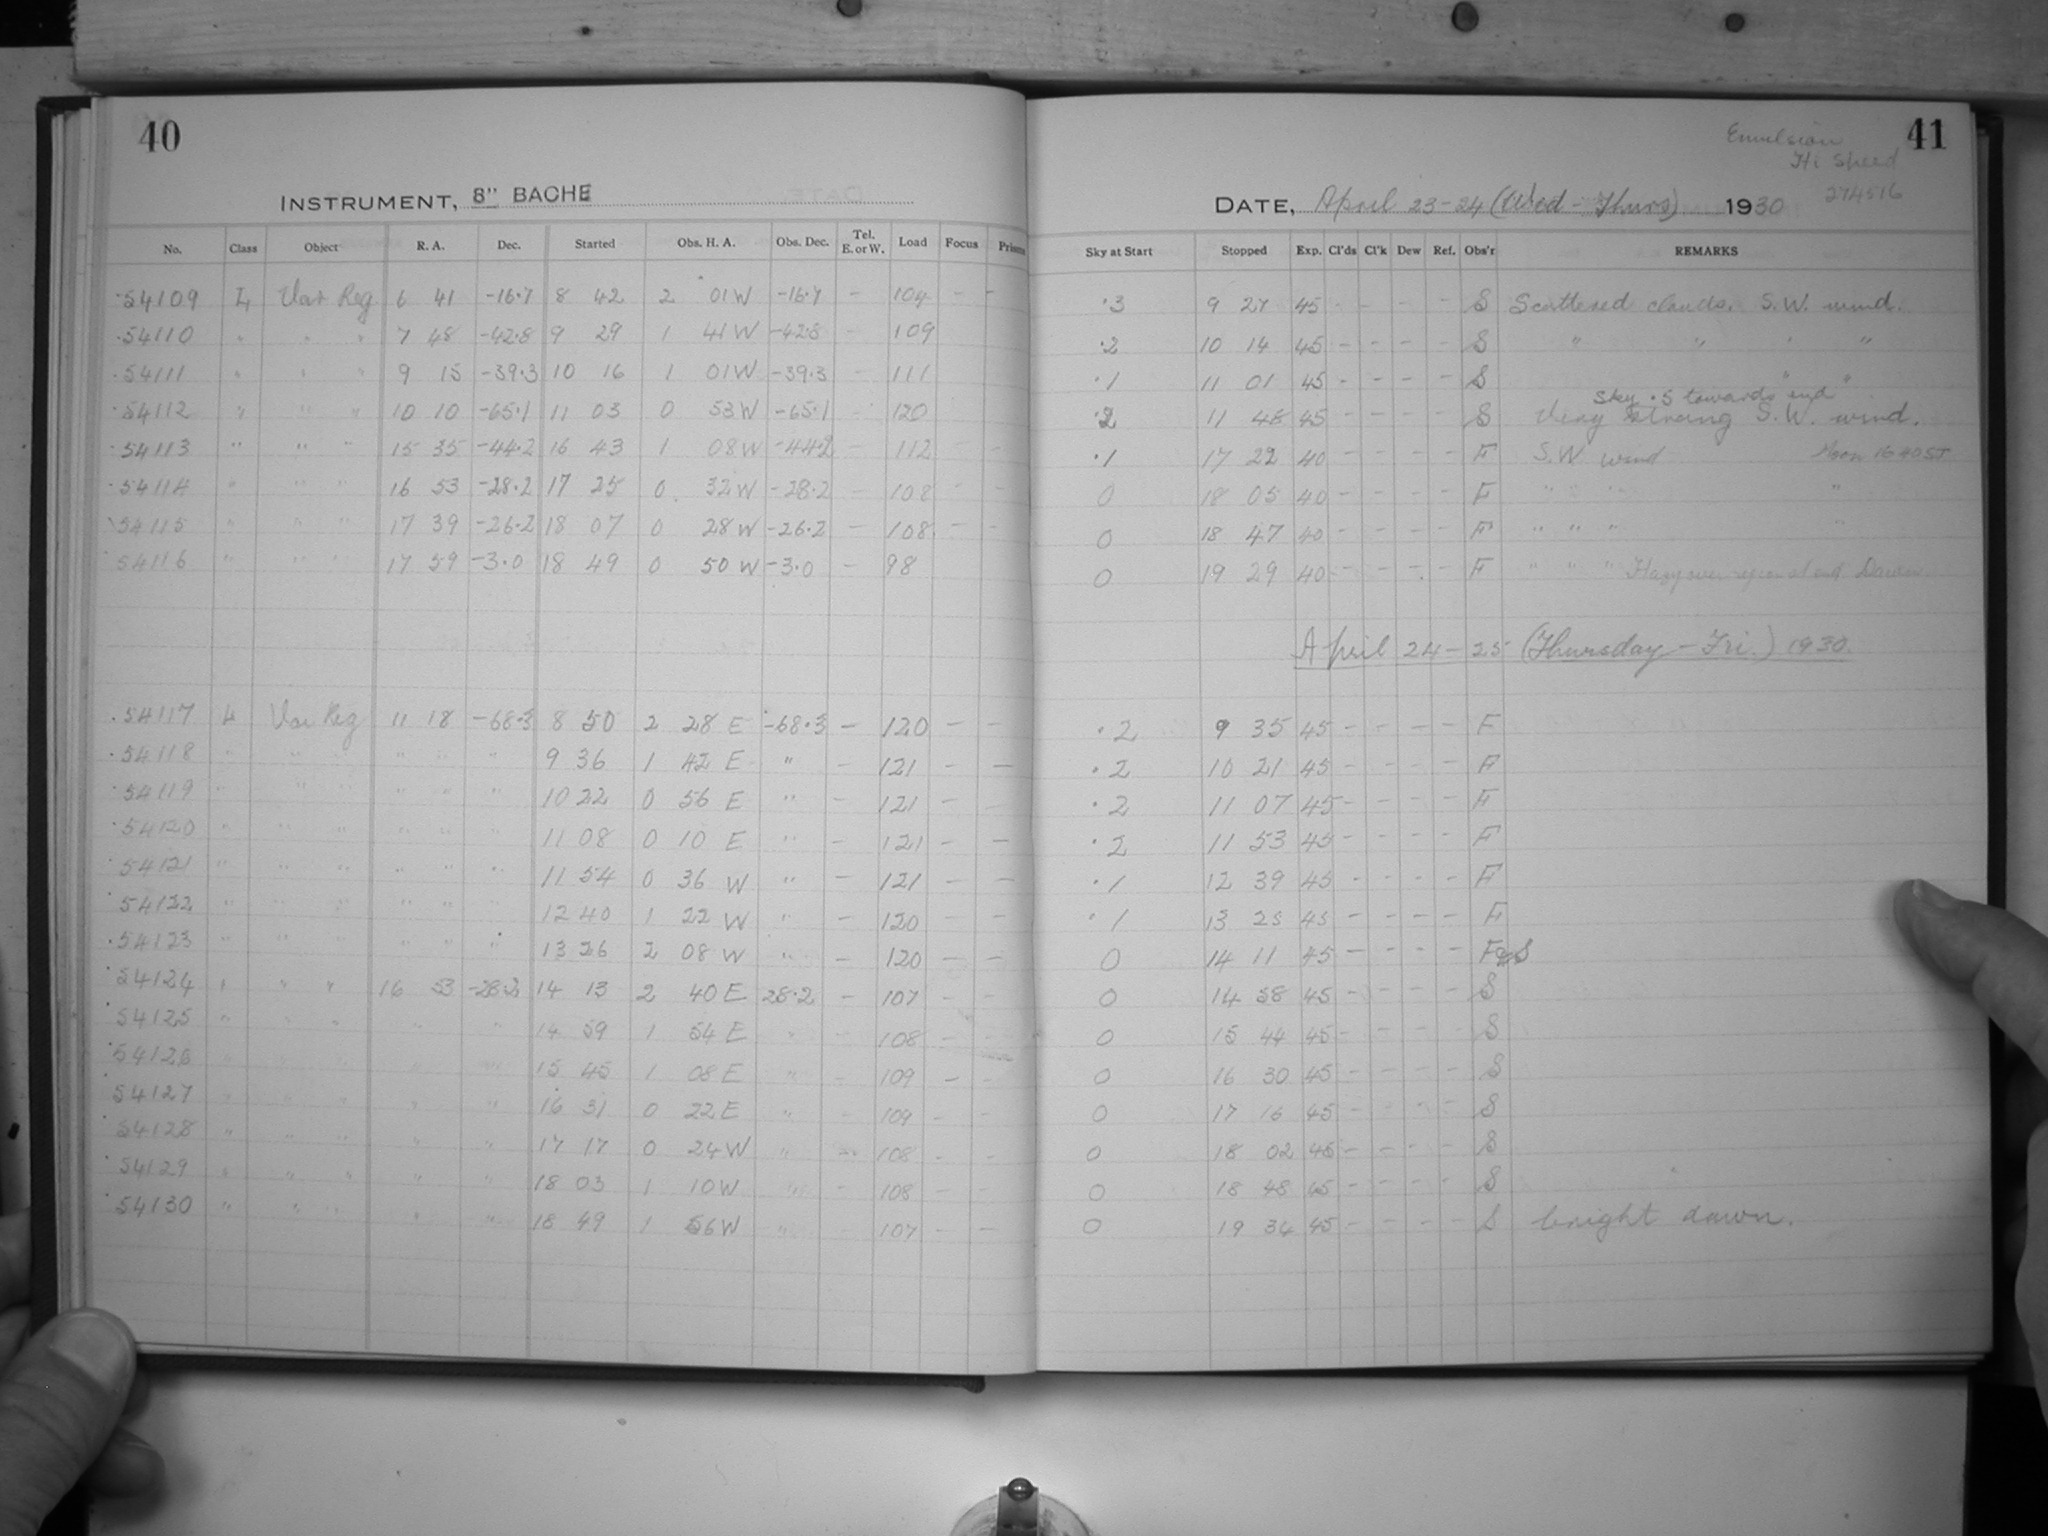 40
INSTRUMENT, 8" BACHE
No. Class Object R. A. Dec. Started Obs. H. A. Obs. Dec. Tel. E. or W. Load Focus Prisms
54109 L Var Reg 6 41 -16.7 8 42 2 01 W -16.7 - 104 - -
54110 " " " 7 48 -42.8 9 29 1 41 W -42.8 - 109
54111 " " " 9 15 -39.3 10 16 1 01 W -39.3 - 111
54112 " " " 10 10 -65.1 11 03 0 53 W -65.1 - 120
54113 " " " 15 35 -44.2 16 43 1 08 W -44.2 - 112 - -
54114 " " " 16 53 -28.2 17 25 0 32 W -28.2 - 108 - -
54115 " " " 17 39 -26.2 18 07 0 28 W -26.2 - 108 - -
54116 " " " 17 59 -3.0 18 49 0 50 W -3.0 - 98
54117 L Var Reg 11 18 -68.3 8 50 2 28 E -68.3 - 120 - -
54118 " " " " " " 9 36 1 42 E " - 121 - -
54119 " " " " " " 10 22 0 56 E " - 121 - -
54120 " " " " " " 11 08 0 10 E " - 121 - -
54121 " " " " " " 11 54 0 36 W " - 121 - -
54122 " " " " " " 12 40 1 22 W " - 120 - -
54123 " " " " " " 13 26 2 08 W " - 120 - -
54124 " " " 16 53 -28.2 14 13 2 40 E 28.2 - 107 - -
54125 " " " " " 14 59 1 54 E " - 108 - -
54126 " " " " " 15 45 1 08 E " - 109 - -
54127 " " " " " 16 31 0 22 E " - 109 - -
54128 " " " " " 17 17 0 24 W " - 108 - -
54129 " " " " " 18 03 1 10 W " - 108 - -
54130 " " " " " 18 49 1 56 W " - 107 - -
41
Emulsion
Hi Speed
274516
DATE, April 23-24 (Wed - Thurs) 1930
Sky at Start Stopped Exp. Cl'ds Cl'k Dew Ref. Obs'r REMARKS
.3 9 27 45 - - - - S Scattered clouds. S.W. wind.
.2 10 14 45 - - - - S " " " "
.1 11 01 45 - - - - S " "
Sky .5 towards end
.2 11 48 45 - - - - S Very strong S.W. wind.
.1 17 22 40 - - - - F S.W. wind Moon 16 40 ST
0 18 05 40 - - - - F " " " "
0 18 47 40 - - - - F " " " "
0 19 29 40 - - - - F " " " Hazy over region at end Dawn
April 24-25 (Thursday - Fri.) 1930.
.2 9 35 45 - - - - F
.2 10 21 45 - - - - F
.2 11 07 45 - - - - F
.2 11 53 45 - - - - F
.1 12 39 45 - - - - F
.1 13 25 45 - - - - F
0 14 11 45 - - - - F & S
0 14 58 45 - - - - S
0 15 44 45 - - - - S
0 16 30 45 - - - - S
0 17 16 45 - - - - S
0 18 02 45 - - - - S
0 18 48 45 - - - - S
0 19 34 45 - - - - S bright dawn.